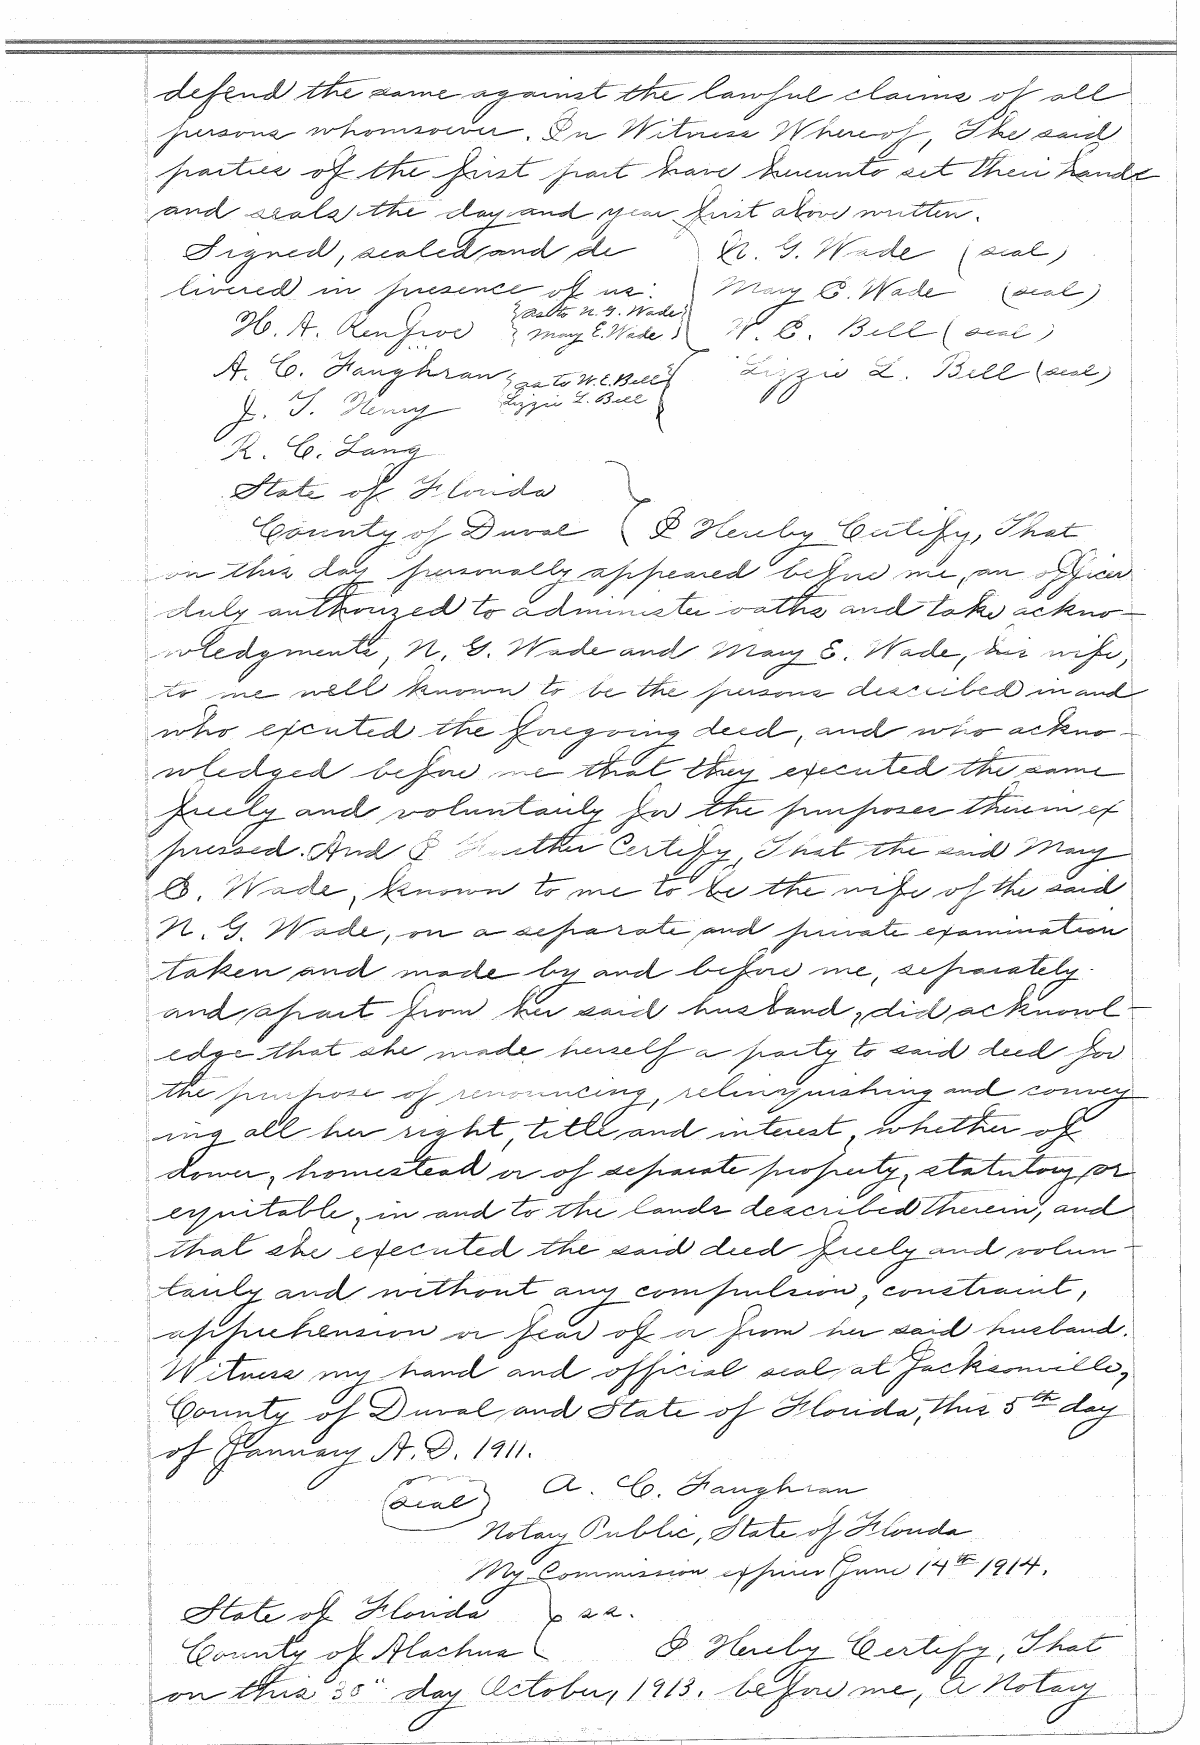 defend the same against the lawful claims of all
persons whomsoever. In Witness Whereof, The said
parties of the first part have hereunto set their hands
and seals the day and year first above written.
Signed, sealed and de N. G. Wade (seal)
livered in presence of us: Mary E. Wade (seal)
H. A. Renfroe as to N. G. Wade Mary E. Wade W. E. Bell (seal)
A. C. Faughnan as to W. E. Bell Lizzie L. Bell Lizzie L. Bell (seal)
J. T. Henry
R. C. Lang
State of Florida
County of Duval I Hereby Certify, That
on this day personally appeared before me, an officer
duly authorized to administer oaths and take ackno-
wledgments, N. G. Wade and Mary E. Wade, his wife,
to me well known to be the persons described in and
who excuted the foregoing deed, and who ackno-
wledged before me that they executed the same
freely and voluntarily for the purposes therein ex
pressed. And I Further Certify, That the said Mary
E. Wade, known to me to be the wife of the said
N. G. Wade, on a separate and private examination
taken and made by and before me, separately
and apart from her said husband, did acknowl-
edge that she made herself a party to said deed for
the purpose of renouncing, relinquishing and convey
ing all her right, title and interest, whether of
dower, homestead or of separate property, statutory or
equitable, in and to the lands described therein, and
that she executed the said deed freely and volun-
tarily and without any compulsion, constraint,
apprehension or fear of or from her said husband.
Witness my hand and official seal at Jacksonville,
County of Duval and State of Florida, this 5th day
of January A. D. 1911.
(seal) A. C. Faughnan
Notary Public, State of Florida
My Commission expires June 14th 1914.
State of Florida ss.
County of Alachua I Hereby Certify, That
on this 30" day October, 1913. before me, a Notary